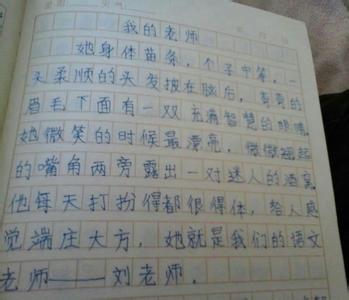 我的老师
她身体苗条，个子中等，一
头柔顺的头发披在脑后，弯弯的
眉毛下面有一双充满智慧的眼睛，
她微笑的时候最漂亮，微微翘起
的嘴角两旁露出一对迷人的酒窝
他每天打扮得都很得体，给人感
觉端庄大方，她就是我们的语文
老师——刘老师。